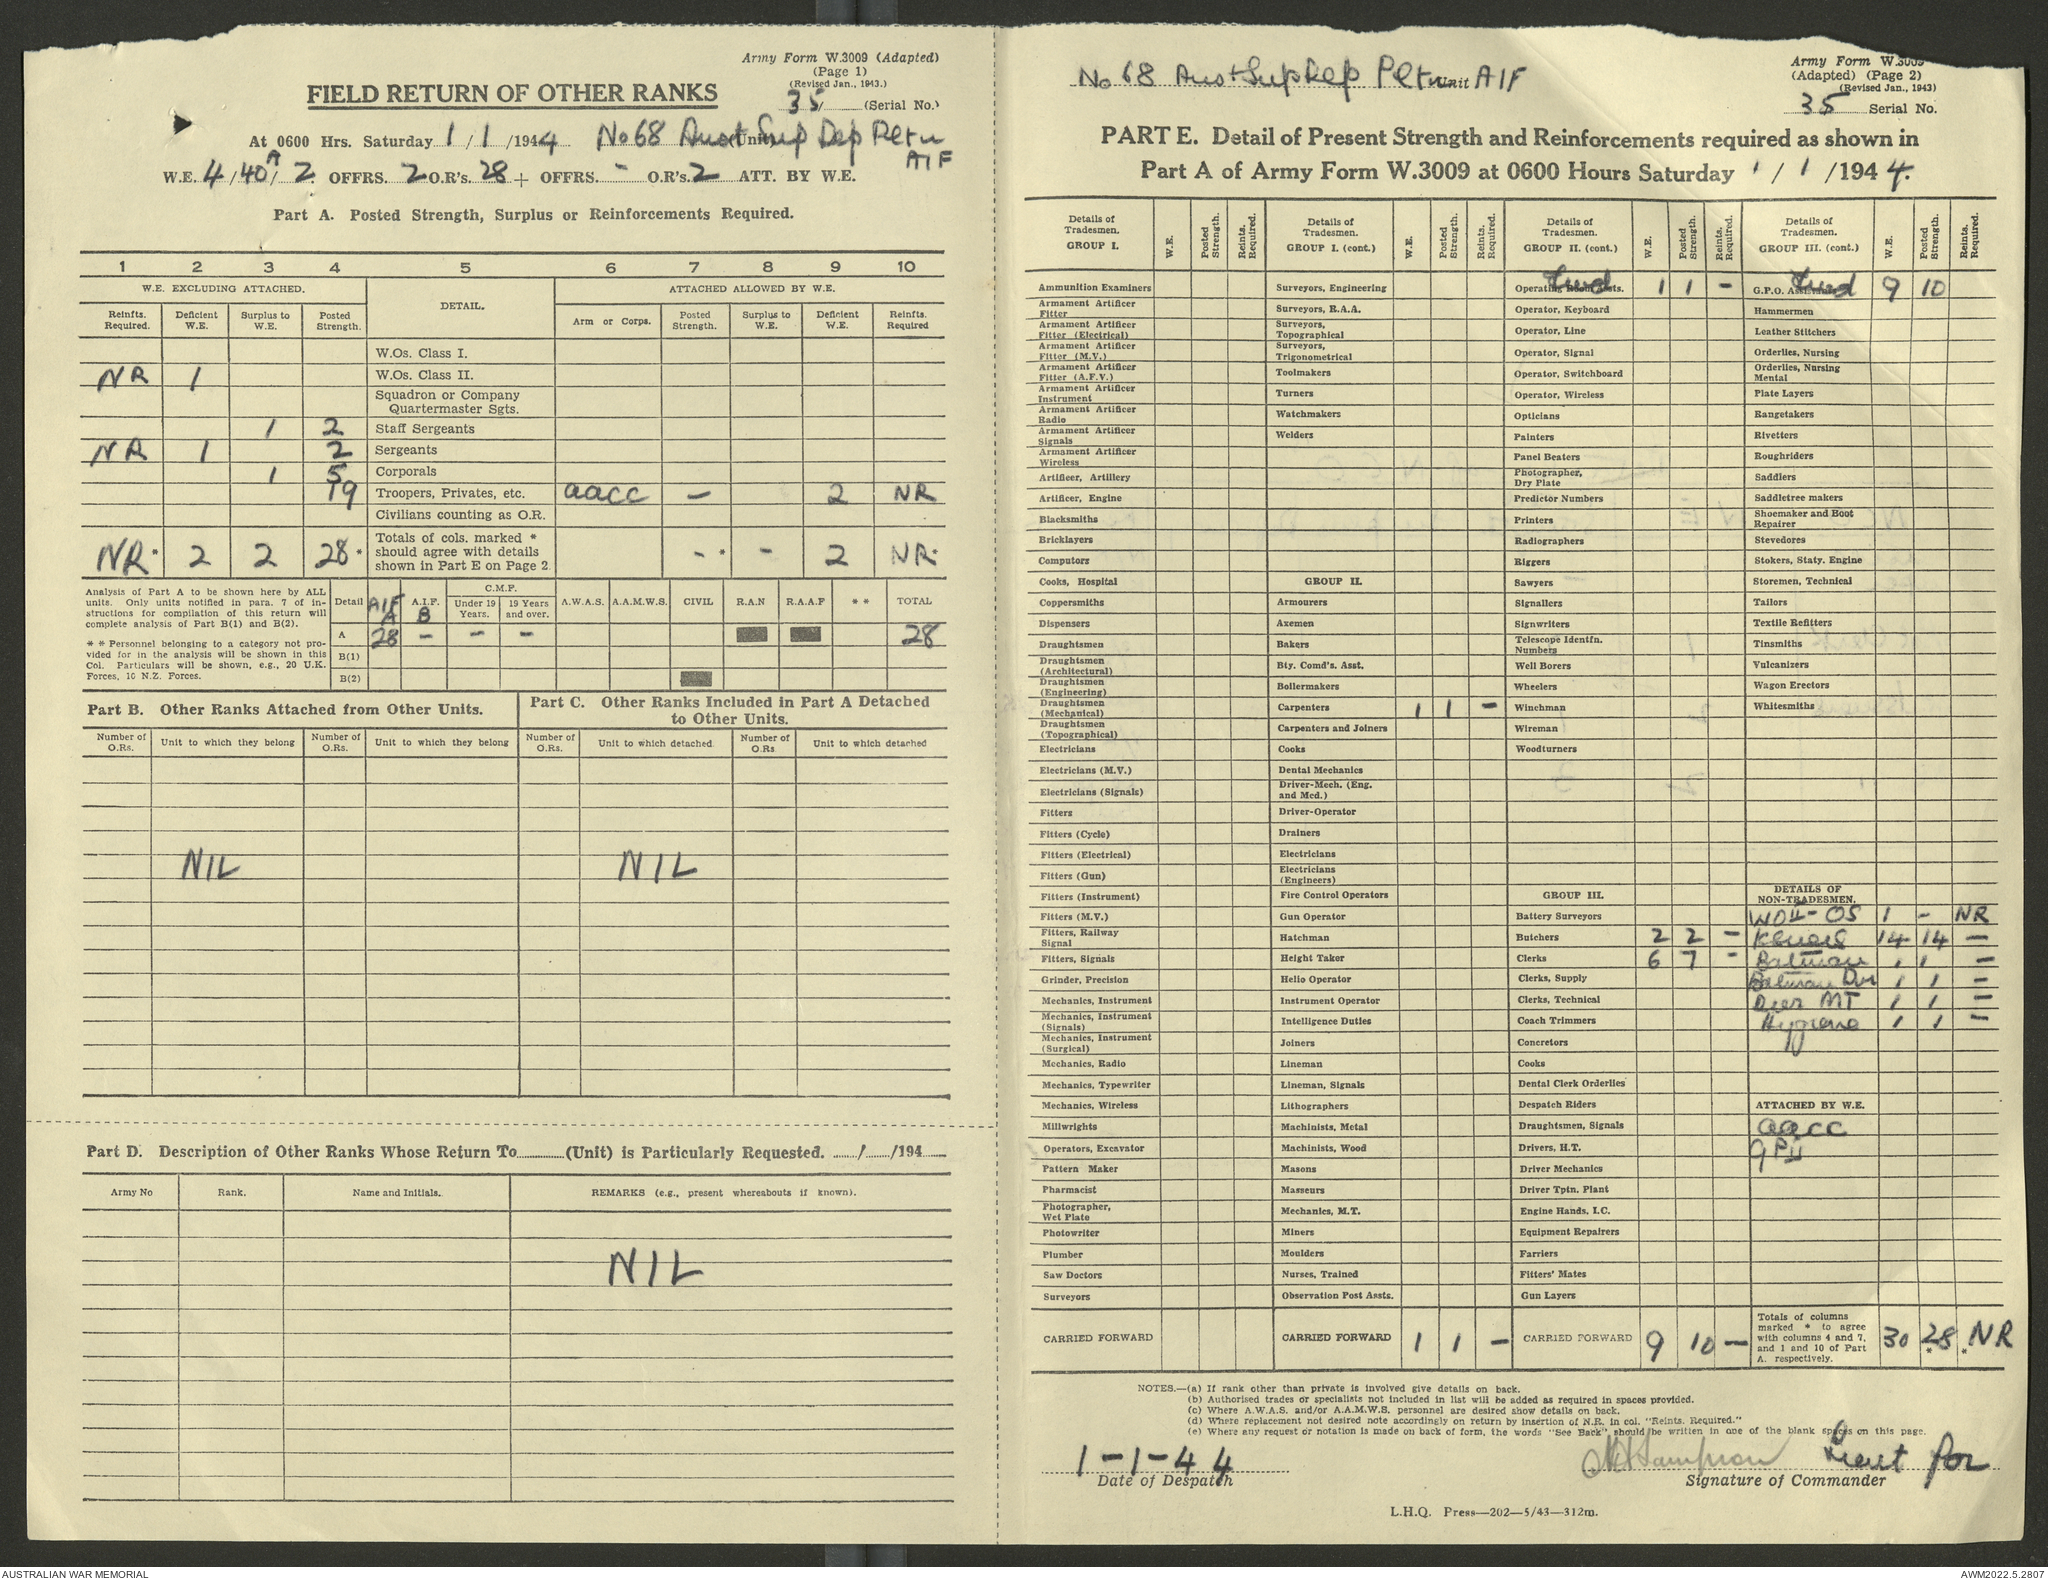 Army Form W.3009 (Adapted)
(Page 1)
(Revised Jan., 1943.)
FIELD RETURN OF OTHER RANKS
35 (Serial No.)
At 0600 Hrs. Saturday 1/1/1944 No 68 Aust Sup Dep Pltn (Unit)
AIF
W.E. 4/40A/2 OFFRS. 2 O.R's. 28 + OFFRS. - O.R's. 2 ATT. BY W.E.
Part A. Posted Strength, Surplus or Reinforcements Required.
1 2 3 4 5 6 7 8 9 10
W.E. EXCLUDING ATTACHED. DETAIL. ATTACHED ALLOWED BY W.E.
Reinfts. Required. Deficient W.E. Surplus to W.E. Posted Strength. Arm or Corps. Posted Strength. Surplus to W.E. Deficient W.E. Reinfts. Required
W.Os. Class I.
NR 1 W.Os. Class II.
Squadron or Company Quartermaster Sgts.
1 2 Staff Sergeants
NR 1 2 Sergeants
1 5 Corporals
19 Troopers, Privates, etc. aacc - 2 NR
Civilians counting as O.R.
NR* 2 2 28* Totals of cols. marked * should agree with details shown in Part E on Page 2 -* - 2 NR*
Analysis of Part A to be shown here by ALL units. Only units notified in para. 7 of instructions for compilation of this return will complete analysis of Part B(1) and B(2).
* * Personnel belonging to a category not provided for in the analysis will be shown in this Col. Particulars will be shown, e.g., 20 U.K. Forces, 10 N.Z. Forces.
Detail AIF A A.I.F. B C.M.F. Under 19 Years. 19 Years and over. A.W.A.S. A.A.M.W.S. CIVIL R.A.N R.A.A.F * * TOTAL
A 28 - - - 28
B(1)
B(2)
Part B. Other Ranks Attached from Other Units.
Part C. Other Ranks Included in Part A Detached to Other Units.
Number of O.Rs. Unit to which they belong Number of O.Rs. Unit to which they belong Number of O.Rs. Unit to which detached Number of O.Rs Unit to which detached
NIL NIL
Part D. Description of Other Ranks Whose Return To (Unit) is Particularly Requested. / /194
Army No Rank. Name and Initials. REMARKS (e.g., present whereabouts if known).
NIL
Army Form W.3009
(Adapted) (Page 2)
(Revised Jan., 1943)
No 68 Aust Sup Dep Pltn Unit AIF
35 Serial No.
PART E. Detail of Present Strength and Reinforcements required as shown in
Part A of Army Form W.3009 at 0600 Hours Saturday 1/1/1944.
Details of Tradesmen. GROUP I. W.E. Posted Strength. Reints. Required.
Ammunition Examiners
Armament Artificer Fitter
Armament Artificer Fitter (Electrical)
Armament Artificer Fitter (M.V.)
Armament Artificer Fitter (A.F.V.)
Armament Artificer Instrument
Armament Artificer Radio
Armament Artificer Signals
Armament Artificer Wireless
Artificer, Artillery
Artificer, Engine
Blacksmiths
Bricklayers
Computors
Cooks, Hospital
Coppersmiths
Dispensers
Draughtsmen
Draughtsmen (Architectural)
Draughtsmen (Engineering)
Draughtsmen (Mechanical)
Draughtsmen (Topographical)
Electricians
Electricians (M.V.)
Electricians (Signals)
Fitters
Fitters (Cycle)
Fitters (Electrical)
Fitters (Gun)
Fitters (Instrument)
Fitters (M.V.)
Fitters, Railway Signal
Fitters, Signals
Grinder, Precision
Mechanics, Instrument
Mechanics, Instrument (Signals)
Mechanics, Instrument (Surgical)
Mechanics, Radio
Mechanics, Typewriter
Mechanics, Wireless
Millwrights
Operators, Excavator
Pattern Maker
Pharmacist
Photographer, Wet Plate
Photowriter
Plumber
Saw Doctors
Surveyors
CARRIED FORWARD
Details of Tradesmen. GROUP I. (cont.) W.E. Posted Strength. Reints. Required.
Surveyors, Engineering
Surveyors, R.A.A.
Surveyors, Topographical
Surveyors, Trigonometrical
Toolmakers
Turners
Watchmakers
Welders
GROUP II.
Armourers
Axemen
Bakers
Bty. Comd's. Asst.
Boilermakers
Carpenters 1 1 -
Carpenters and Joiners
Cooks
Dental Mechanics
Driver-Mech. (Eng. and Med.)
Driver-Operator
Drainers
Electricians
Electricians (Engineers)
Fire Control Operators
Gun Operator
Hatchman
Height Taker
Helio Operator
Instrument Operator
Intelligence Duties
Joiners
Lineman
Lineman, Signals
Lithographers
Machinists, Metal
Machinists, Wood
Masons
Masseurs
Mechanics, M.T.
Miners
Moulders
Nurses, Trained
Observation Post Assts.
CARRIED FORWARD 1 1 -
Details of Tradesmen. GROUP II. (cont.) W.E. Posted Strength. Reints. Required.
Operating Room Assts. fwd 1 1 -
Operator, Keyboard
Operator, Line
Operator, Signal
Operator, Switchboard
Operator, Wireless
Opticians
Painters
Panel Beaters
Photographer, Dry Plate
Predictor Numbers
Printers
Radiographers
Riggers
Sawyers
Signallers
Signwriters
Telescope Identfn. Numbers
Well Borers
Wheelers
Winchman
Wireman
Woodturners
GROUP III.
Battery Surveyors
Butchers 2 2 -
Clerks 6 7 -
Clerks, Supply
Clerks, Technical
Coach Trimmers
Concretors
Cooks
Dental Clerk Orderlies
Despatch Riders
Draughtsmen, Signals
Drivers, H.T.
Driver Mechanics
Driver Tptn. Plant
Engine Hands, I.C.
Equipment Repairers
Farriers
Fitters' Mates
Gun Layers
CARRIED FORWARD 9 10 -
Details of Tradesmen. GROUP III. (cont.) W.E. Posted Strength. Reints. Required.
G.P.O. Assistants fwd 9 10
Hammermen
Leather Stitchers
Orderlies, Nursing
Orderlies, Nursing Mental
Plate Layers
Rangetakers
Rivetters
Roughriders
Saddlers
Saddletree makers
Shoemaker and Boot Repairer
Stevedores
Stokers, Staty. Engine
Storemen, Technical
Tailors
Textile Refitters
Tinsmiths
Vulcanizers
Wagon Erectors
Whitesmiths
DETAILS OF NON-TRADESMEN.
WOII - OS 1 - NR
14 14 -
Batman 1 1 -
Batman Dvr 1 1 -
Dvr MT 1 1 -
Hygiene 1 1 -
ATTACHED BY W.E.
aacc
GP II
Totals of columns marked * to agree with columns 4 and 7, and 1 and 10 of Part A. respectively. 30 28* *NR
NOTES.—(a) If rank other than private is involved give details on back.
(b) Authorised trades or specialists not included in list will be added as required in spaces provided.
(c) Where A.W.A.S. and/or A.A.M.W.S. personnel are desired show details on back.
(d) Where replacement not desired note accordingly on return by insertion of N.R. in col. "Reints. Required."
(e) Where any request or notation is made on back of form, the words "See Back" should be written in one of the blank spaces on this page.
1-1-44 Lieut for
Date of Despatch Signature of Commander
L.H.Q. Press—202—5/43—312m.
AUSTRALIAN WAR MEMORIAL AWM2022.5.2807